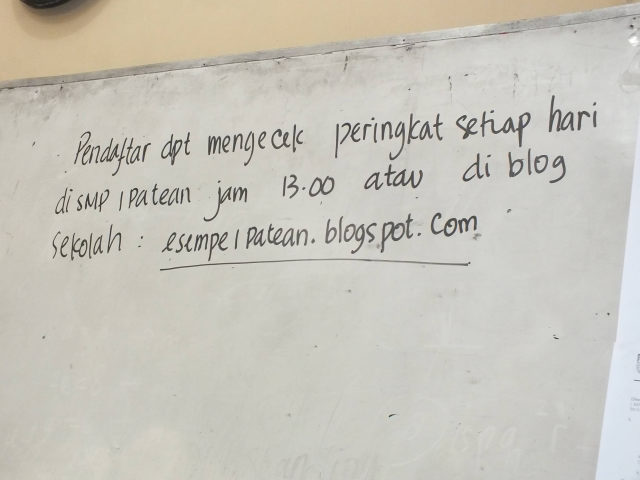 Pendaftar dpt mengecek peringkat setiap hari
di SMP 1 Patean jam 13.00 atau di blog
Sekolah : esempe1patean.blogspot.com